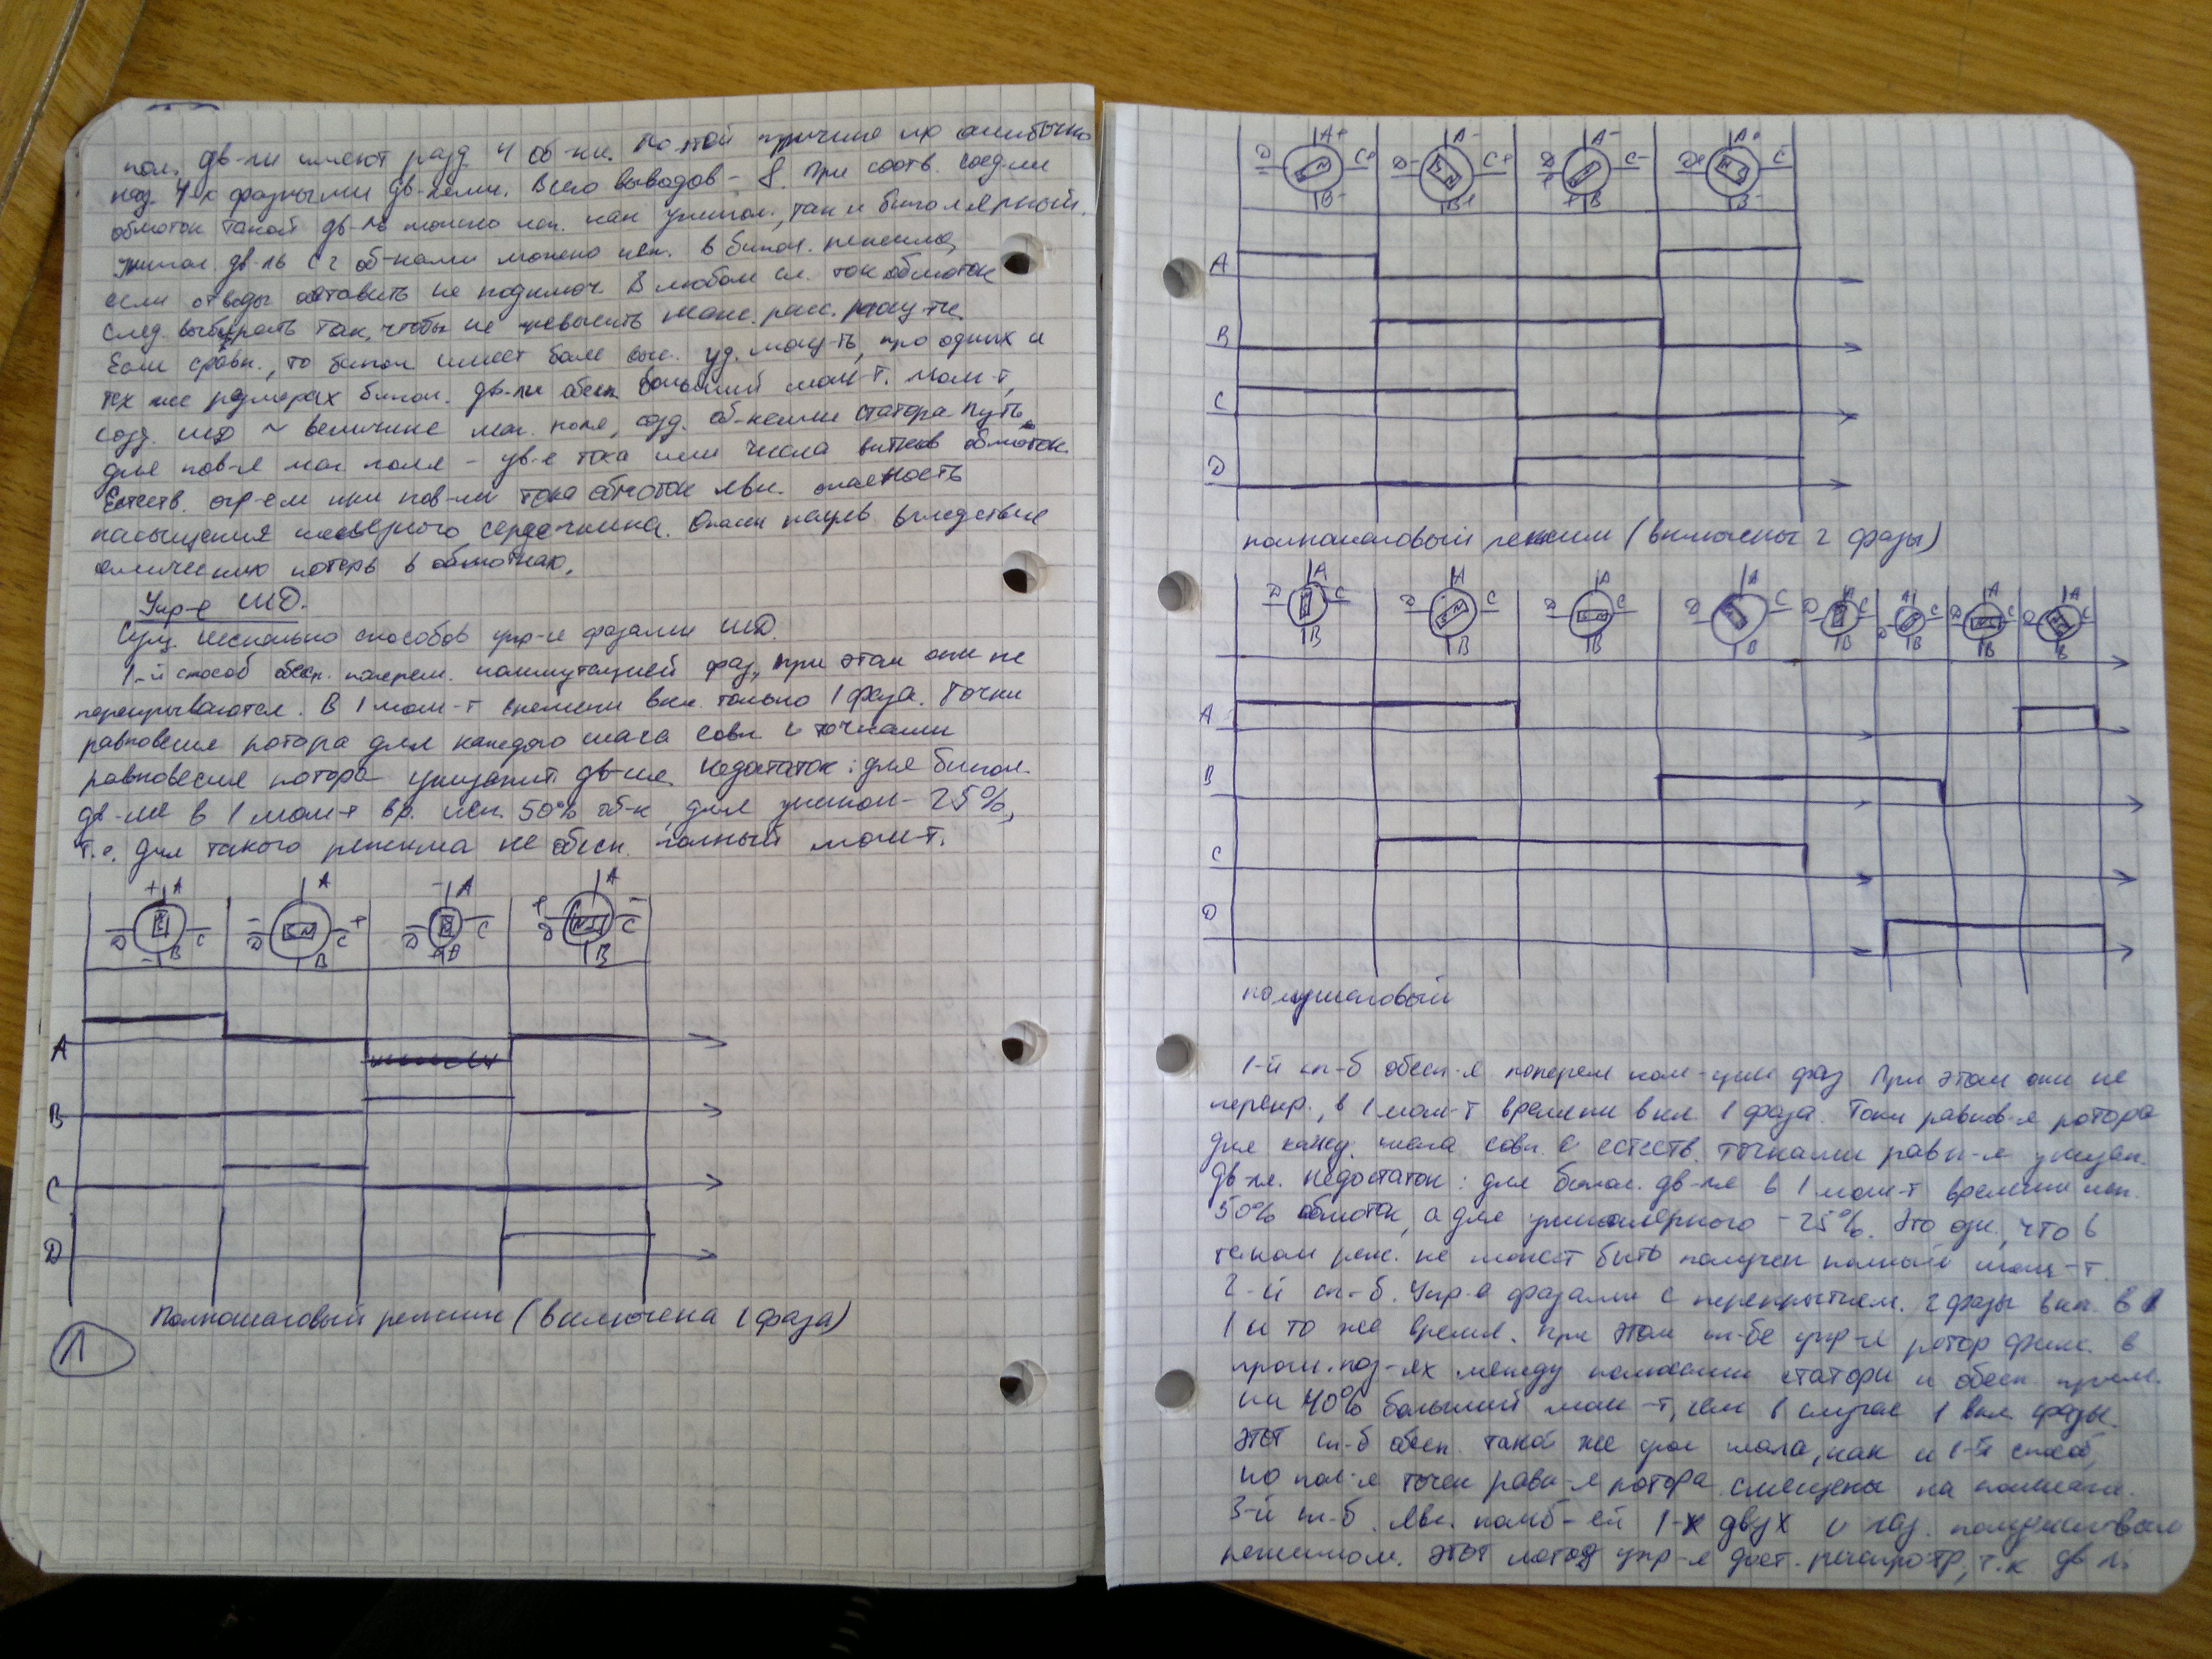 пол. дв-ли имеют разд. 4 об-ки. По этой причине их ошибочно
наз. 4-х фазными дв-лями. Всего выводов - 8. При соотв. соед-ии
обмоток такой дв-ль можно исп. как унипол., так и биполярный.
Унипол. дв-ль с 2 об-ками можно исп. в бипол. режиме,
если отводы оставить не подключ. В любом сл. ток обмоток
след. выбирать так, чтобы не превысить макс. расс. мощ-ти.
Если сравн., то бипол имеет более выс. уд. мощ-ть, при одних и
тех же размерах бипол. дв-ли обесп. больший мом-т. Мом-т,
созд. ШД ~ величине маг. поля, созд. об-ками статора. Путь
для пов-я маг поля - ув-е тока или числа витков обмоток.
Естеств. огр-ем при пов-ии тока обмоток явл. опасность
насыщения железного сердечника. Опасн нагрев вследствие
омических потерь в обмотках.
Упр-е ШД.
Сущ. несколько способов упр-я фазами ШД.
1-й способ обесп. поперем. коммутацией фаз, при этом они не
перекрываются. В 1 мом-т времени вкл. только 1 фаза. Точки
равновесия ротора для каждого шага совп. с точками
равновесия ротора дв-ля. Недостаток: для бипол.
дв-ля в 1 мом-т вр. исп. 50% об-к, для унипол - 25%,
т.е. для такого режима не обесп. полный мом-т.
+ A A - A A
D C - D C + D C + D C -
- B B + B B
A
B
C
D
Полношаговый режим (включена 1 фаза)
1
A+ A- A- A+
D C+ D- C+ D+ C- D+ C-
B- B+ +B B-
A
B
C
D
полношаговый режим (включены 2 фазы)
A A A A A A A A
D C D C D C D C D C D C D C D C
B B B B B B B B
A
B
C
D
полушаговый
1-й сп-б обесп-я поперем ком-ции фаз При этом они не
перекр., в 1 мом-т времени вкл. 1 фаза. Точки равнов-я ротора
для кажд. шага совп. с естеств. точками равн-я
дв-ля. Недостаток: для бипол. дв-ля в 1 мом-т времени исп.
50% обмоток, а для униполярного - 25%. Это озн., что в
таком реж. не может быть получен полный мом-т.
2-й сп-б. Упр-е фазами с перекрытием. 2 фазы вкл. в
1 и то же время. При этом сп-бе упр-я ротор фикс. в
пром. поз-ях между полюсами статора и обесп. прим.
на 40% больший мом-т, чем в случае 1 вкл. фазы.
Этот сп-б обесп. такой же угол шага, как и 1-й способ,
но пол-я точек равн-я ротора смещены на полшага.
3-й сп-б. явл. комб-ей 1-х двух и наз. полушаговым
режимом. Этот метод упр-я дост. распростр, т.к дв-ль